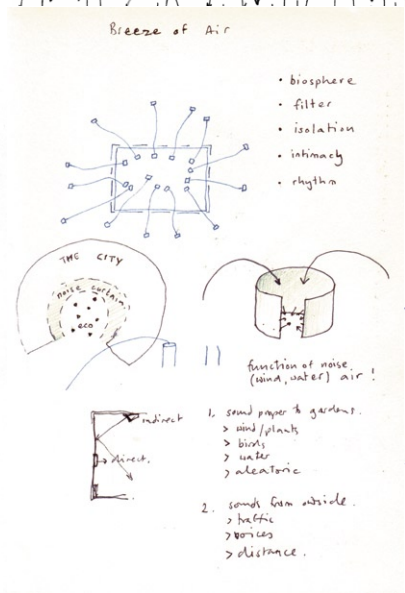 Breeze of Air
• biosphere
• filter
• isolation
• intimacy
• rhythm
THE CITY
noise curtain
eco
function of noise.
(wind, water) air !
indirect
direct.
1. sound proper to gardens.
> wind/plants
> birds
> water
> aleatoric
2. sounds from outside.
> traffic
> voices
> distance.